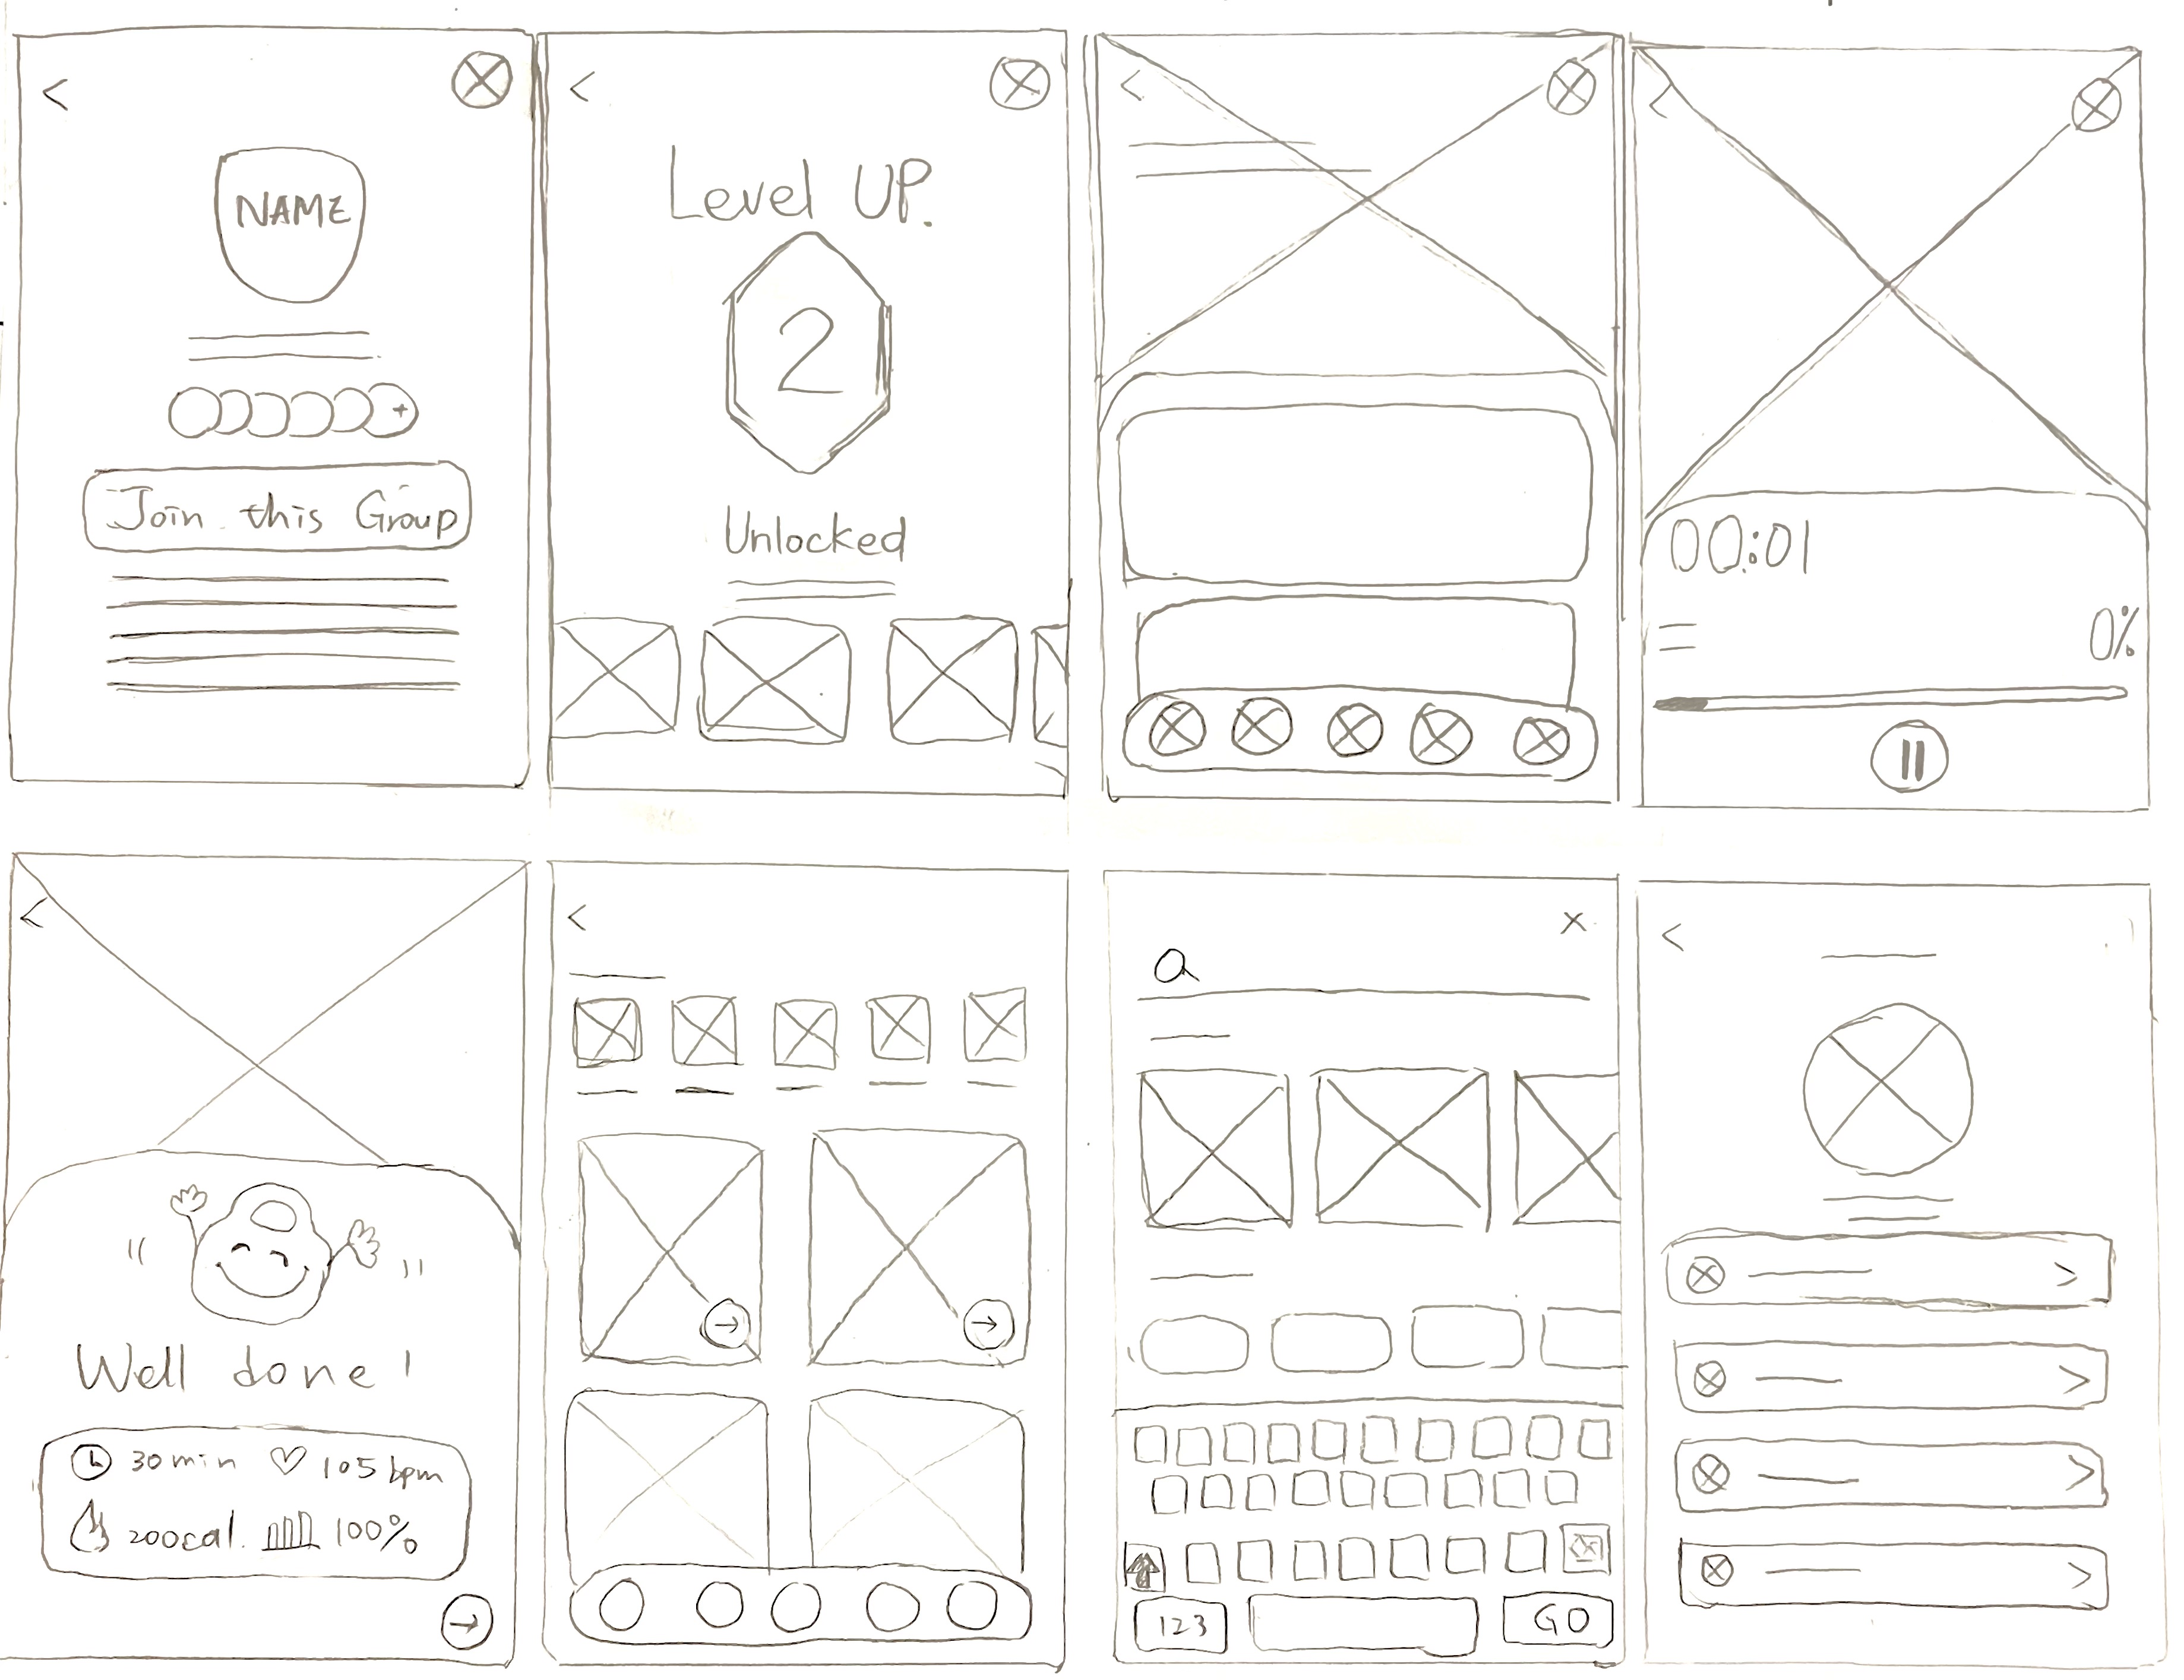 NAME
Join this Group
Level UP.
2
Unlocked
00:01
0%
Well done!
30min 105bpm
200cal. 100%
123
GO